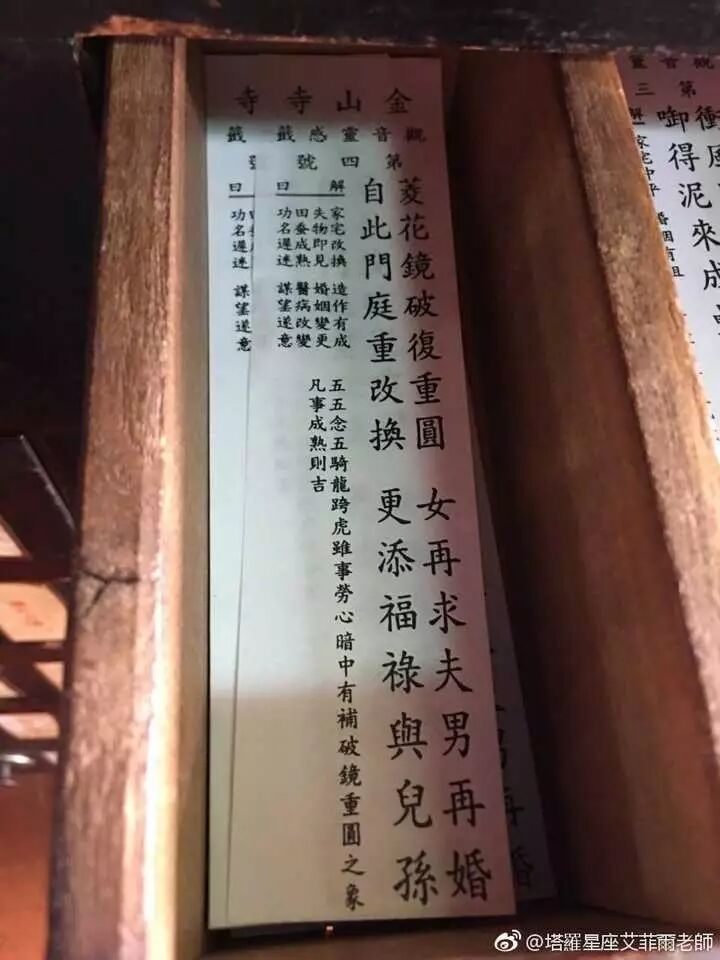 金山寺寺
觀音靈感籤籤
第四號號
菱花鏡破復重圓 女再求夫男再婚
自此門庭重改換 更添福祿與兒孫
解曰
家宅改換 造作有成
失物即見 婚姻變更
田蚕成熟 醫病改變
功名遲迷 謀望遂意
五五念五騎龍跨虎雖事勞心暗中有補破鏡重圓之象
凡事成熟則吉
曰
功名遲迷 謀望遂意
觀音靈
第三
衝風
啣得泥來成
解 家宅中平 婚姻有阻
再婚
@塔羅星座艾菲爾老師